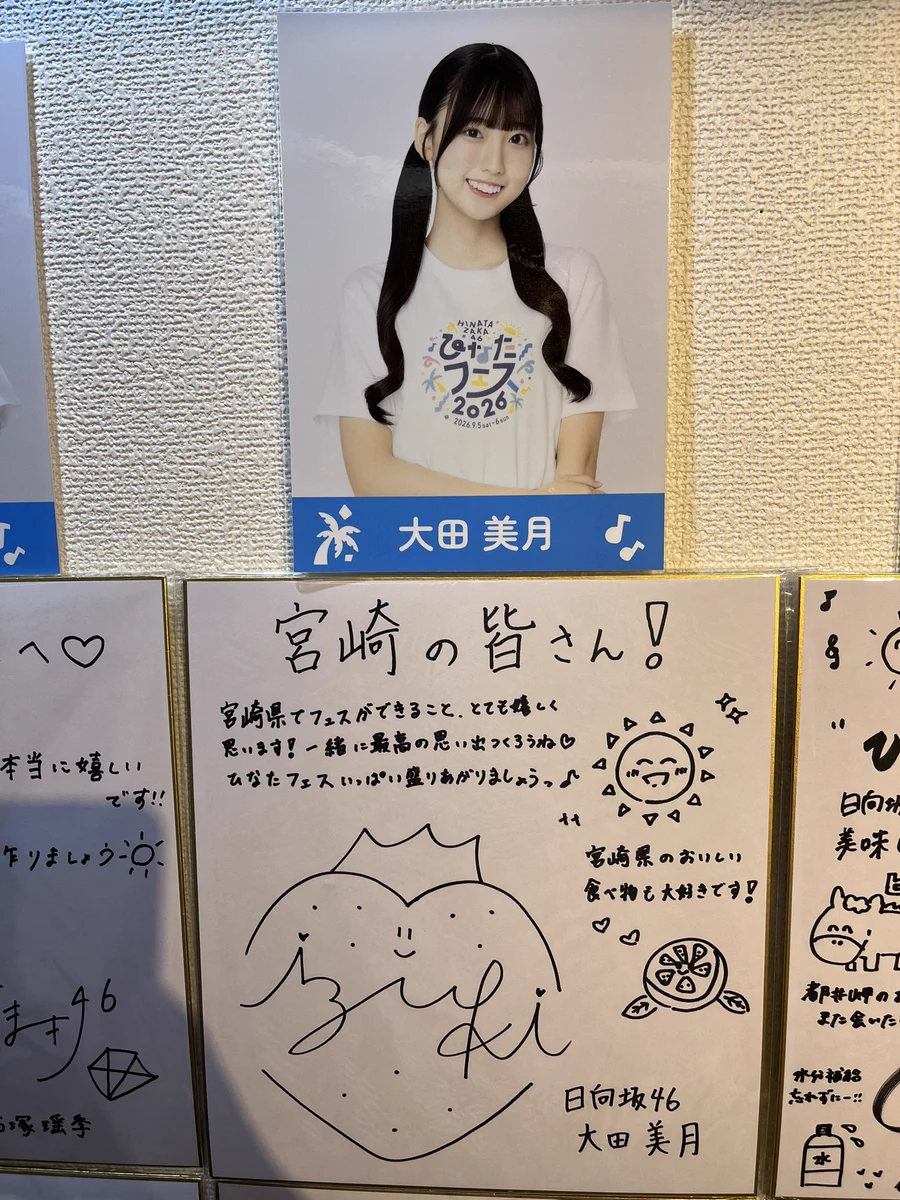 HINATA
ZAKA
46
ひなた
フェス
2026
2026.9.5sat-6sun
大田 美月
宮崎の皆さん!
宮崎県でフェスができること、とても嬉しく
思います!一緒に最高の思い出つくろうね♡
ひなたフェスいっぱい盛りあがりましょうっ♪
宮崎県のおいしい
食べ物も大好きです!
日向坂46
大田 美月
へ♡
本当に嬉しい
です!!
作りましょう
46
塚 瑶季
日向坂
美味し
都井岬のお
また会いた
水分補給
忘れずにー!!
水